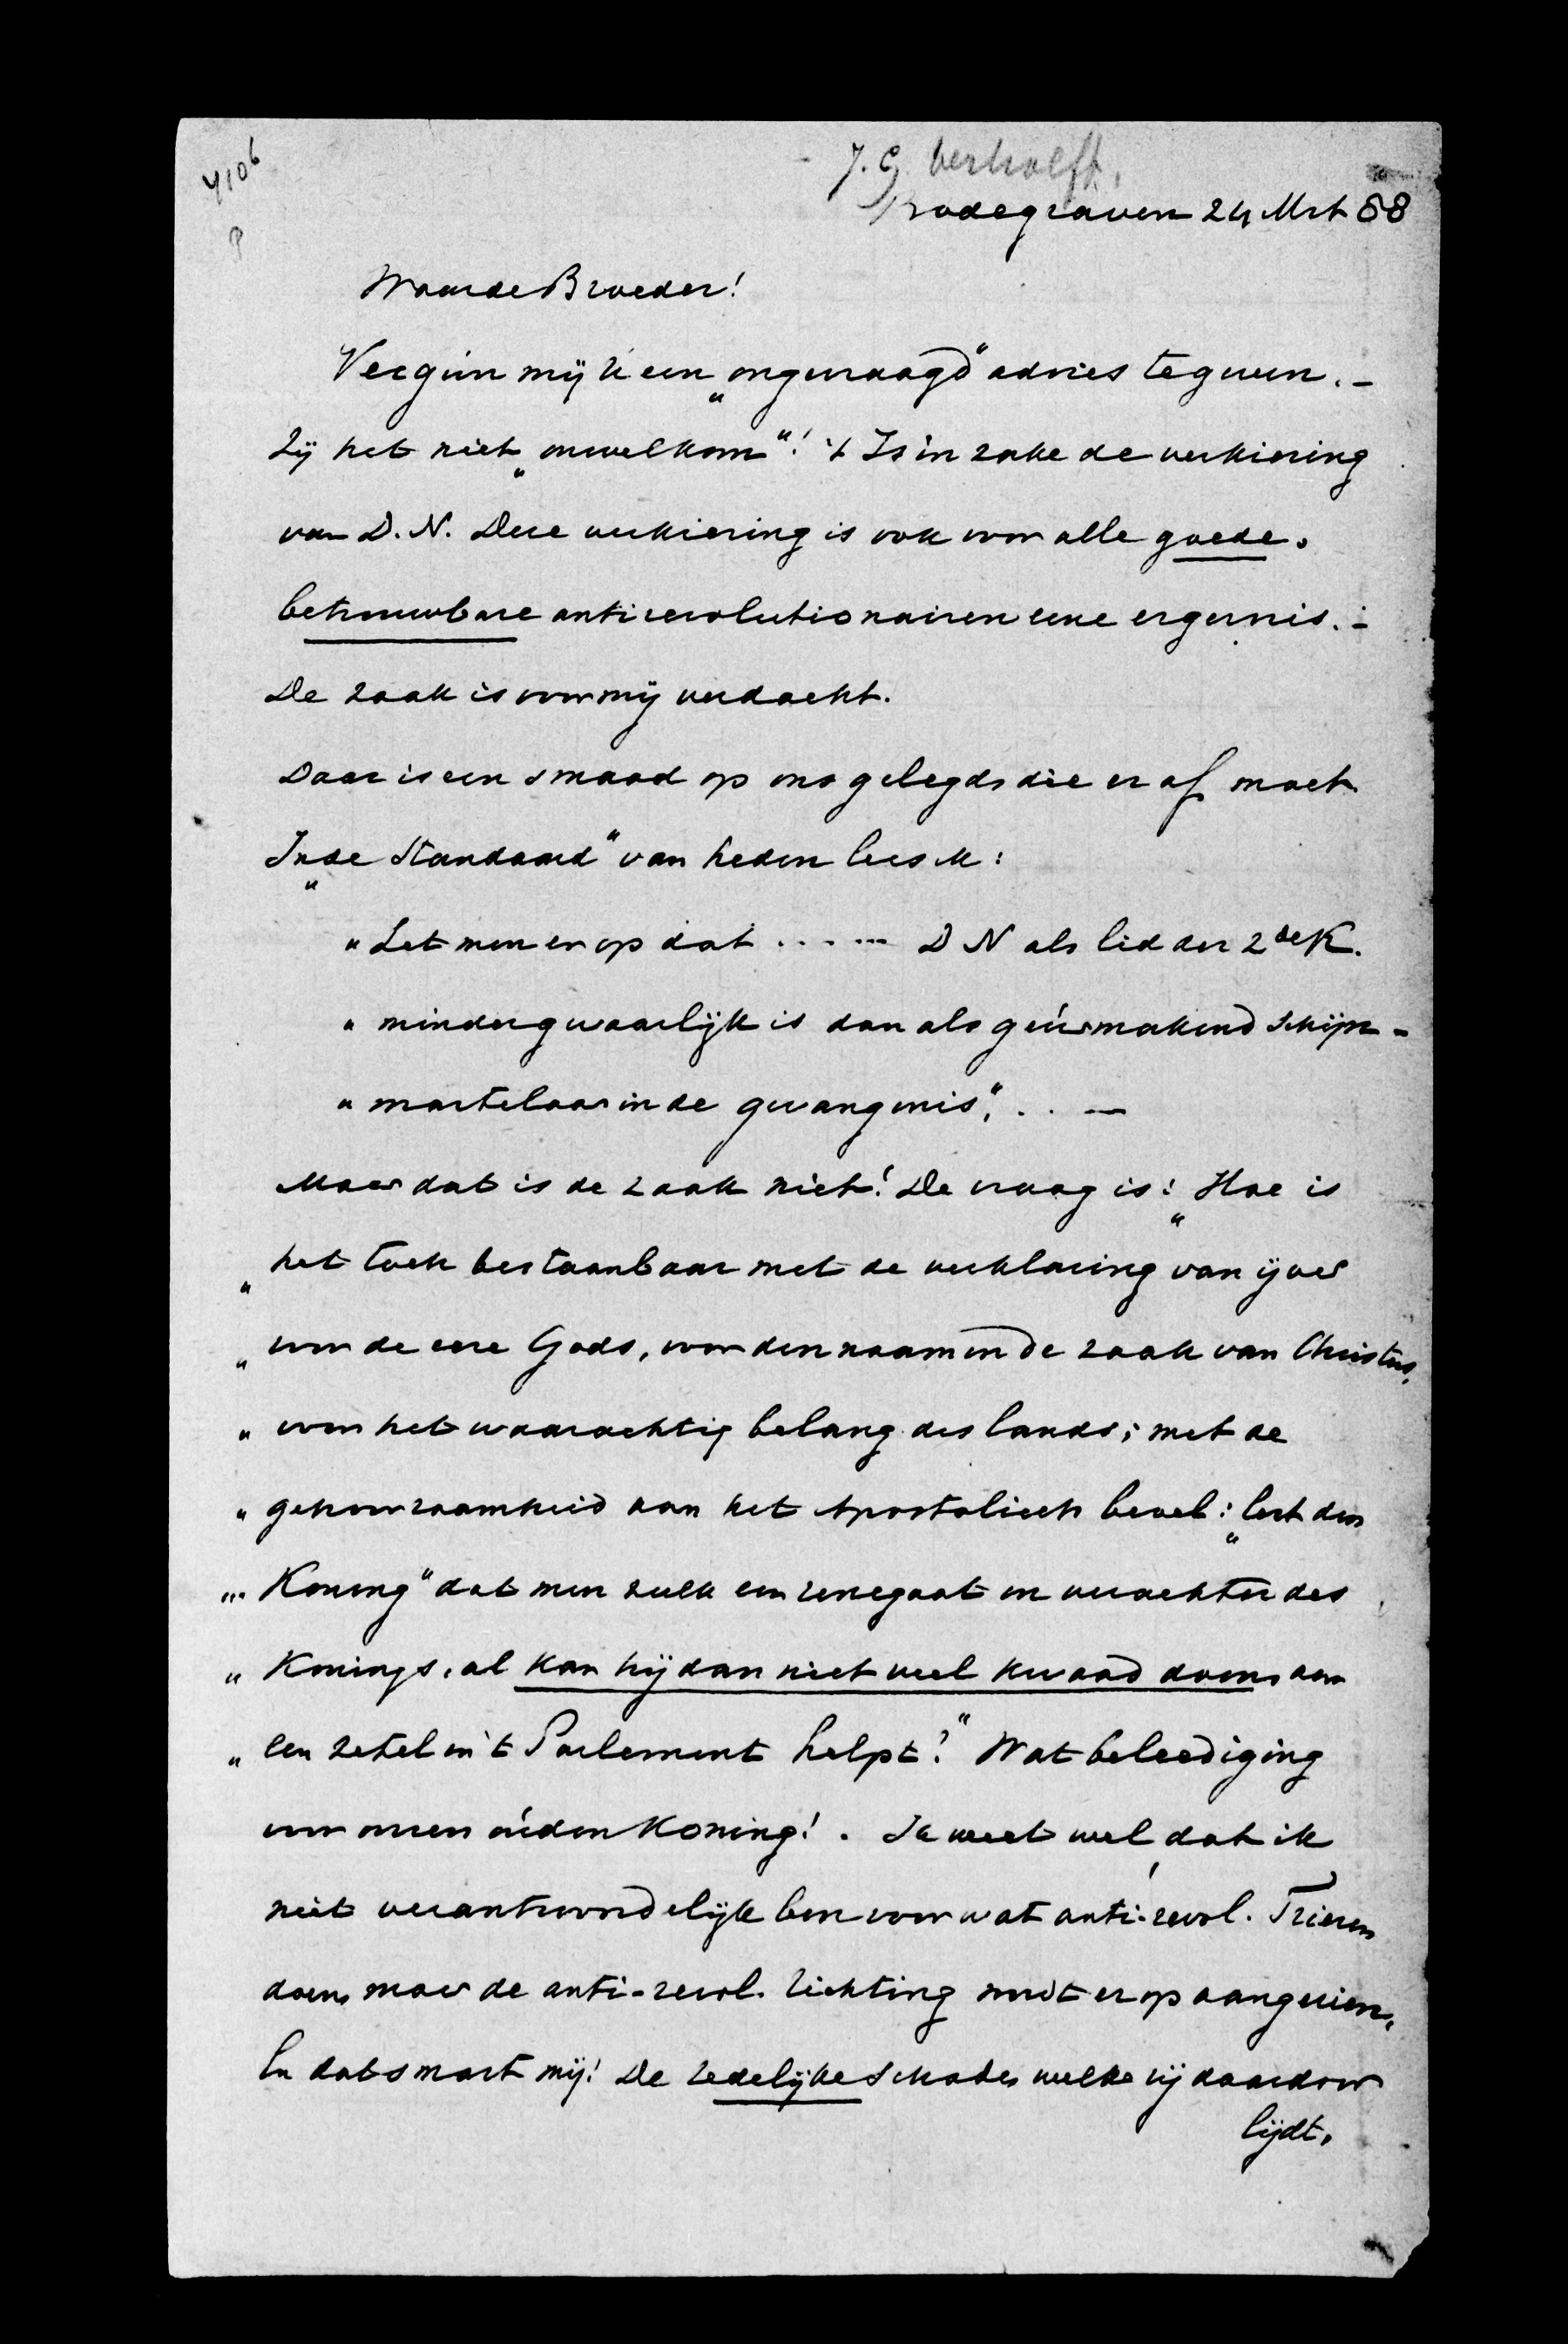 4106
J. G Verhoeff.
Bodegraven 24 Mrt 88
Waarde Broeder!
Vergun mij U een „ongevraagd" advies te geven. –
Zij het niet „onwelkom"! 't Is in zake de verkiezing
van D. N. Deze verkiezing is ook voor alle goede,
betrouwbare antirevolutionairen eene ergernis. –
De zaak is voor mij verdacht.
Daar is een smaad op ons gelegd, die er af moet.
In „de Standaard" van heden lees ik:
„Let men er op dat ...... D N als lid der 2de K.
„minder gevaarlijk is dan als geurmakend schijn-
„martelaar in de gevangenis", . . —
Maar dat is de zaak niet! De vraag is: „Hoe is
„het toch bestaanbaar met de verklaring van ijver
„voor de eere Gods, voor den naam en de zaak van Christus,
„voor het waarachtig belang des lands; met de
„gehoorzaamheid aan het Apostolisch bevel: „Eert den
„„Koning" dat men zulk een renegaat en verachter des
„Konings, al kan hij dan niet veel kwaad doen, aan
„een zetel in 't Parlement helpt?" Wat beleediging
voor onzen ouden Koning! . Ik weet wel, dat ik
niet verantwoordelijk ben voor wat anti-revol. Friezen
doen, maar de anti-revol. richting wordt er op aangezien,
En dat smart mij! De zedelijke schade, welke zij daardoor
lijdt,